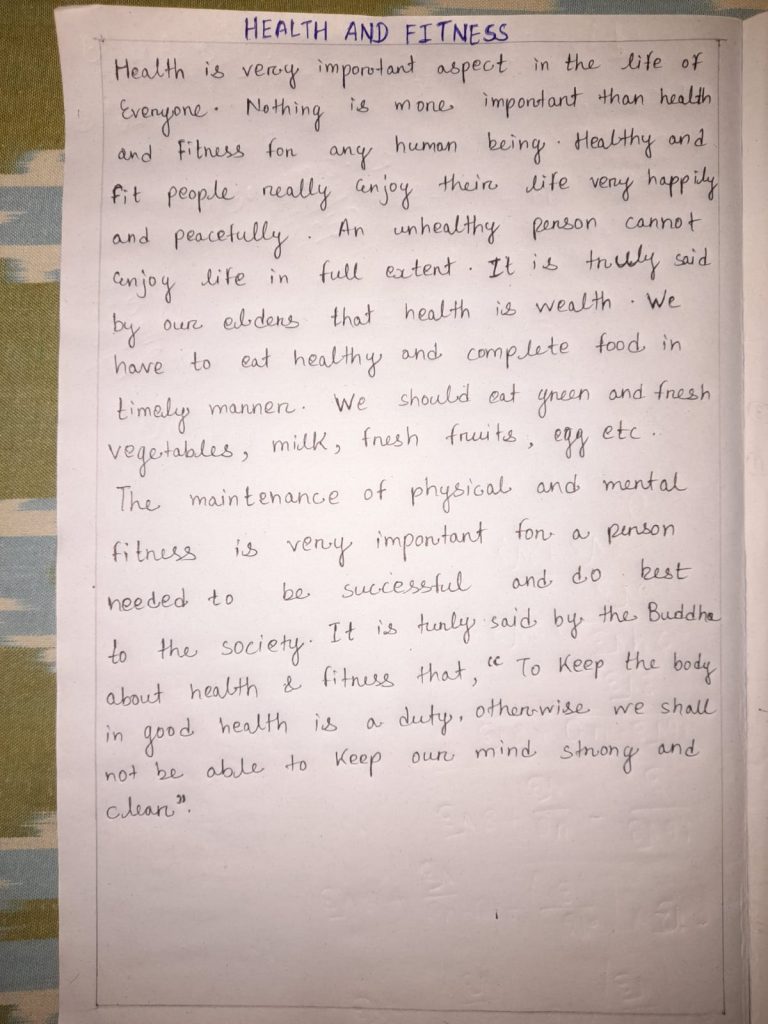 HEALTH AND FITNESS
Health is very important aspect in the life of
Everyone. Nothing is more important than health
and Fitness for any human being. Healthy and
fit people really enjoy their life very happily
and peacefully. An unhealthy person cannot
enjoy life in full extent. It is truly said
by our elders that health is wealth. We
have to eat healthy and complete food in
timely manner. We should eat green and fresh
vegetables, milk, fresh fruits, egg etc.
The maintenance of physical and mental
fitness is very important for a person
needed to be successful and do best
to the society. It is turly said by the Buddha
about health & fitness that, "To Keep the body
in good health is a duty, otherwise we shall
not be able to Keep our mind strong and
clean".